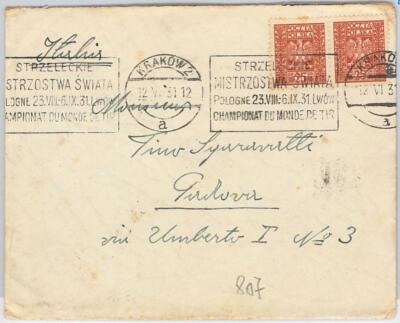 Italia
STRZELECKIE
MISTRZOSTWA ŚWIATA
POLOGNE 23.VIII-6.IX.31.LWÓW
CHAMPIONAT DU MONDE DE TIR
KRAKÓW 2
12 VI 31 12
a
POCZTA POLSKA
25
POCZTA POLSKA
25
STRZELECKIE
MISTRZOSTWA ŚWIATA
POLOGNE 23.VIII-6.IX.31.LWÓW
CHAMPIONAT DU MONDE DE TIR
KRAKÓW
12 VI 31
a
Monsieur
Tino
Padova
via Umberto I No 3
807